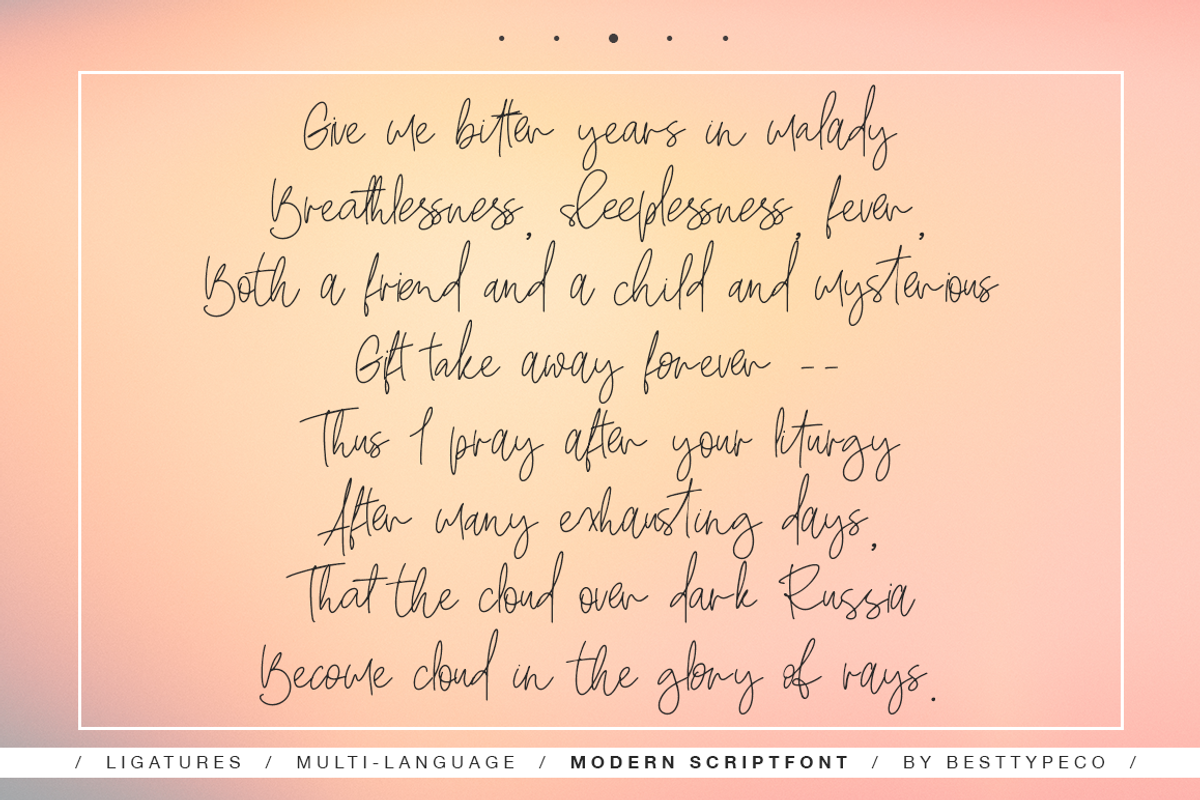 Give me bitter years in malady
Breathlessness, sleeplessness, fever,
Both a friend and a child and mysterious
Gift take away forever --
Thus I pray after your liturgy
After many exhausting days,
That the cloud over dark Russia
Become cloud in the glory of rays.
/ LIGATURES / MULTI-LANGUAGE / MODERN SCRIPTFONT / BY BESTTYPECO /